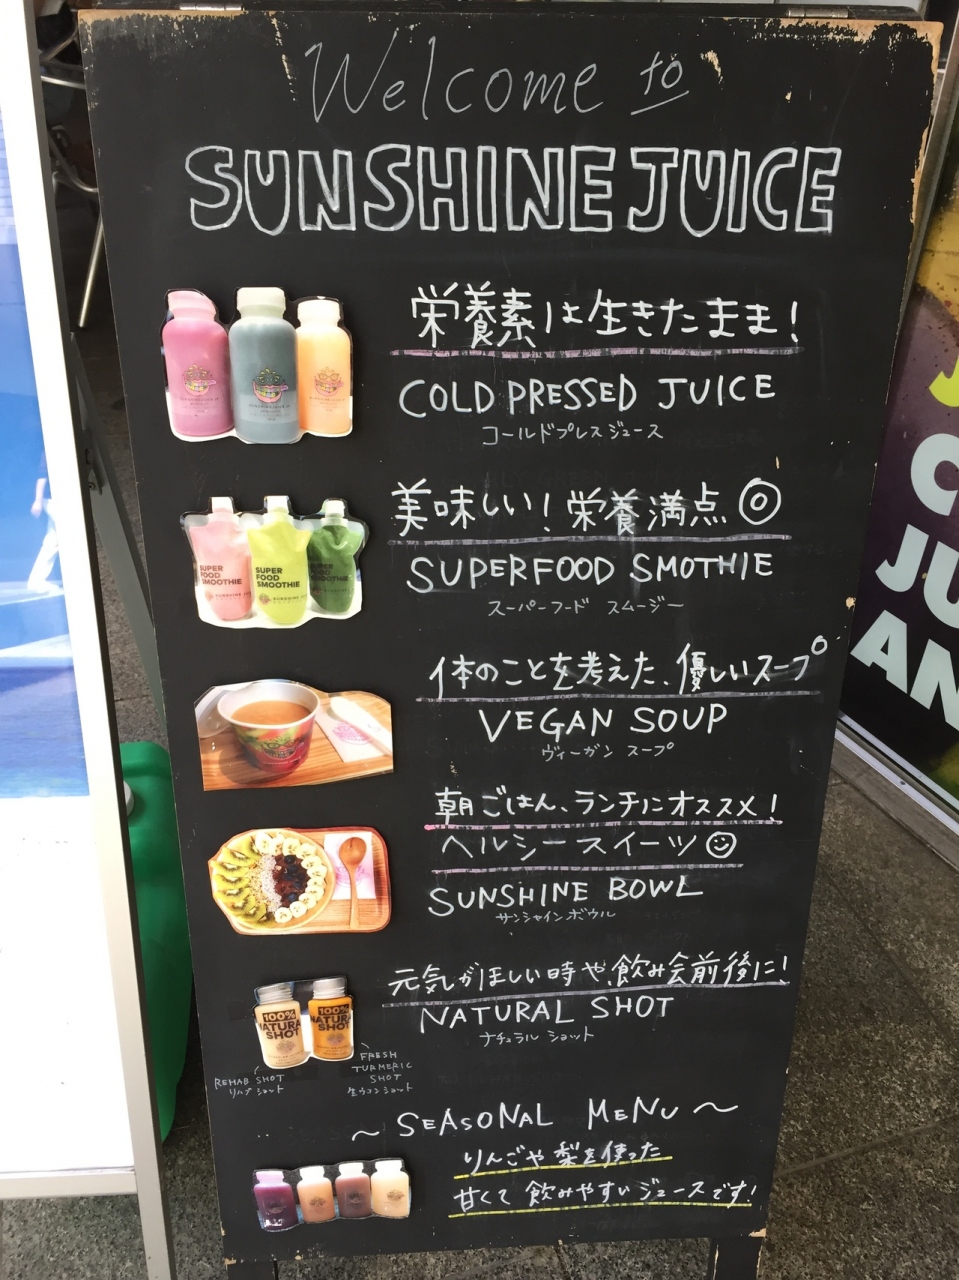 Welcome to
SUNSHINE JUICE
栄養素は生きたまま!
COLD PRESSED JUICE
コールドプレスジュース
美味しい!栄養満点◎
SUPERFOOD SMOTHIE
スーパーフード スムージー
SUPER
FOOD
SMOOTHIE
SUPER
FOOD
SMOOTHIE
体のことを考えた、優しいスープ
VEGAN SOUP
ヴィーガン スープ
朝ごはん、ランチにオススメ!
ヘルシースイーツ☺
SUNSHINE BOWL
サンシャインボウル
元気がほしい時や、飲み会前後に!
NATURAL SHOT
ナチュラル ショット
100%
NATURAL
SHOT
100%
NATURAL
SHOT
REHAB SHOT
リハブショット
FRESH
TURMERIC
SHOT
生ウコンショット
~ SEASONAL MENU ~
りんごや梨を使った
甘くて飲みやすいジュースです!